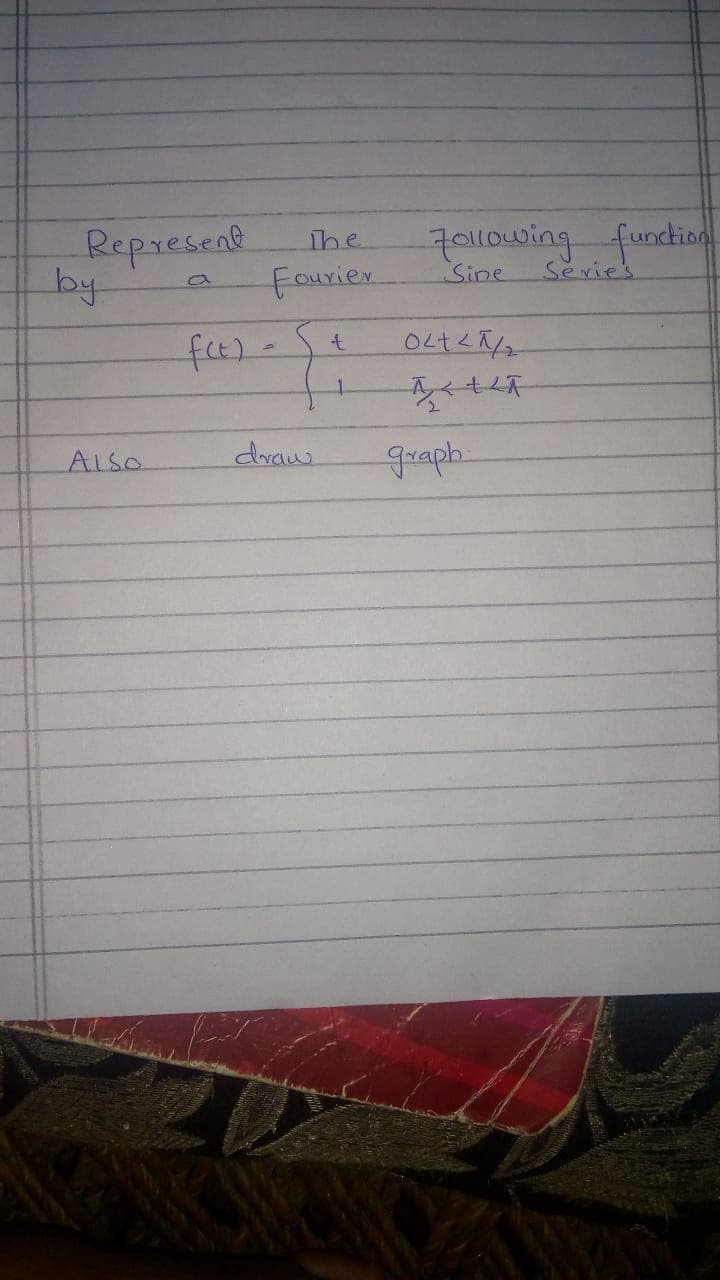 Represent The Following function
by a Fourier Sine Series
f(t) = { t 0<t<π/2
1 π/2<t<π
Also draw graph